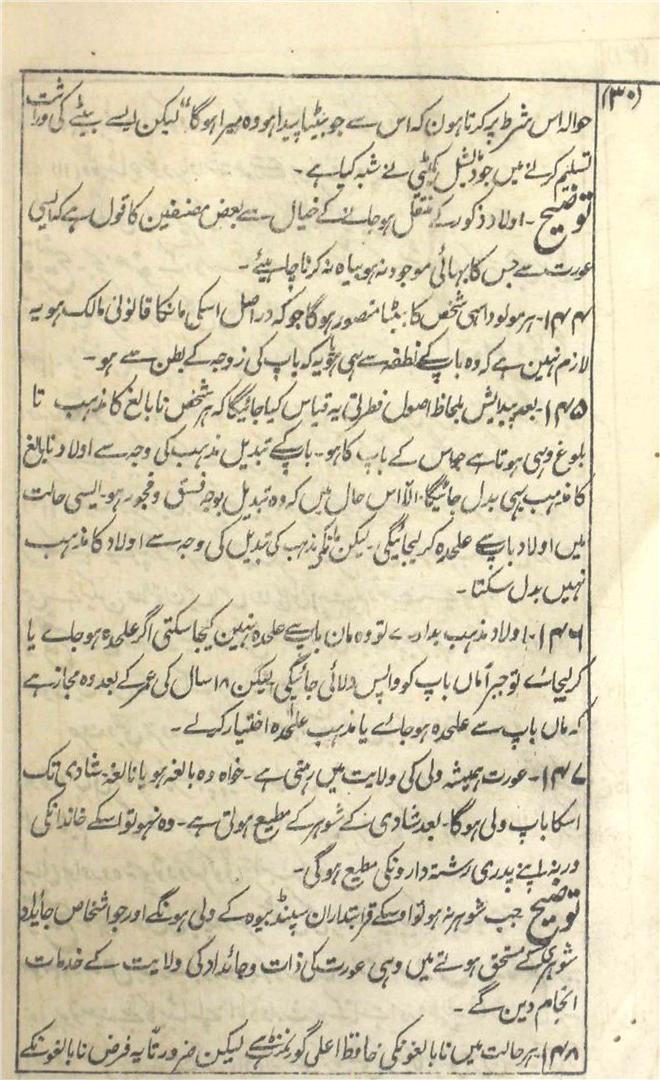 (۳۰)
حوالہ اس شرط پر کرتا ہون کہ اس سے جو بیٹا پیدا ہو وہ میرا ہوگا" لیکن ایسے بیٹے کی وراثت
تسلیم کرنے میں جوڈیشل کمیٹی نے شبہ کیا ہے ۔
توضیح ۔ اولاد ذکور کے منتقل ہو جانے کے خیال ۔ سے بعض مصنفین کا قول ہے کہ ایسی
عورت سے جس کا بہائی موجود نہ ہو بیاہ نہ کرنا چاہیئے ۔
۱۴۴ ۔ ہر مولود اسی شخص کا بیٹا متصور ہوگا جو کہ دراصل اسکی ماںکا قانونی مالک ہو یہ
لازم نہین ہے کہ وہ باپ کے نطفہ سے ہی ہو یا یہ کہ باپ کی زوجہ کے بطن سے ہو ۔
۱۴۵ ۔ بعد پیدایش بلحاظ اصول فطرتی یہ قیاس کیا جائیگا کہ ہر شخص نابالغ کا مذہب تا
بلوغ وہی ہوتا ہے جو اس کے باپ کا ہو ۔ باپکے تبدیل مذہب کی وجہ سے اولاد نابالغ
کا مذہب بہی بدل جائیگا ۔ الا اس حال میں کہ وہ تبدیل بوجہ فسق و فجور ہو ۔ ایسی حالت
میں اولاد باپ سے علحدہ کر لیجائیگی ۔ لیکن مانکی مذہب کی تبدیل کی وجہ سے اولاد کا مذہب
نہیں بدل سکتا ۔
۱۴۶ ۔ اولاد مذہب بدلدے تو وہ مان باپ سے علحدہ نہین کیجا سکتی اگر علحدہ ہو جاے یا
کر لیجاے تو جبراً ماں باپ کو واپس دلائی جائیگی لیکن ۱۸ سال کی عمر کے بعد وہ مجاز ہے
کہ ماں باپ سے علحدہ ہو جائے یا مذہب علحدہ اختیار کرلے ۔
۱۴۷ ۔ عورت ہمیشہ ولی کی ولایت میں رہتی ہے ۔ خواہ وہ بالغہ ہو یا نابالغہ ۔ شادی تک
اسکا باپ ولی ہوگا ۔ بعد شادی کے شوہر کے مطیع ہوتی ہے ۔ وہ نہو تو اسکے خاندانکی
ورنہ اپنے پدری رشتہ دارونکی مطیع ہوگی ۔
توضیح جب شوہر نہ ہو تو اوسکے قرابتداران سپنڈ بیوہ کے ولی ہونگے اور جو اشخاص جایداد
شوہری کے مستحق ہوتے میں وہی عورت کی ذات و جائداد کی ولایت کے خدمات
انجام دین گے ۔
۱۴۸ ۔ ہر حالت میں نابالغونکی محافظ اعلی گورنمنٹ ہے لیکن ضرورتاً یہ فرض نابالغونکے